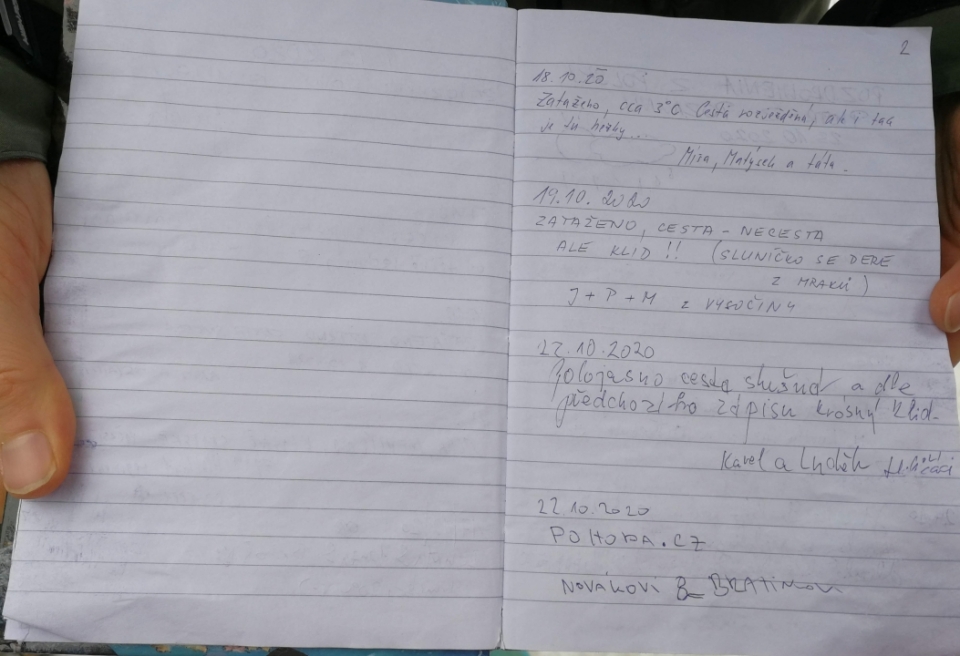 2
18.10.20
Zataženo, cca 3°C Cesta rozježděná, ale i tak
je tu hezky...
Míra, Matýsek a táta.
19.10. 2020
ZATAŽENO, CESTA - NECESTA
ALE KLID !! (SLUNÍČKO SE DERE
Z MRAKŮ)
J + P + M Z VYSOČINY
22.10.2020
Polojasno cesta slušná a dle
předchozího zápisu krásný klid.
Karel a Luděk
22.10.2020
POHODA.CZ
NOVÁKOVI